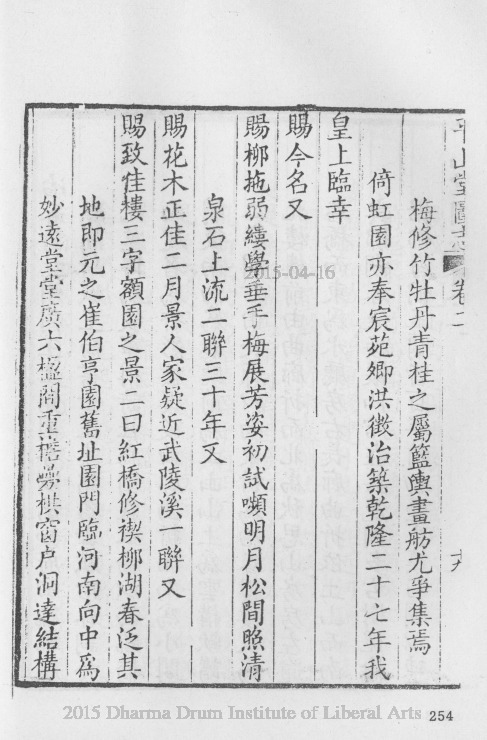 平山堂圖志 卷二
十九
梅修竹牡丹青桂之屬籃輿畫舫尤爭集焉
倚虹園亦奉宸苑卿洪徴治築乾隆二十七年我
皇上臨幸
賜今名又
賜柳拖弱縷學垂手梅展芳姿初試嚬明月松間照清
泉石上流二聯三十年又
賜花木正佳二月景人家疑近武陵溪一聯又
賜致佳樓三字額園之景二曰紅橋修禊柳湖春泛其
地即元之崔伯亨園舊址園門臨河南向中爲
妙遠堂堂廣六楹閣重檐疊栱窗户洞達結構
2015-04-16
2015 Dharma Drum Institute of Liberal Arts
254